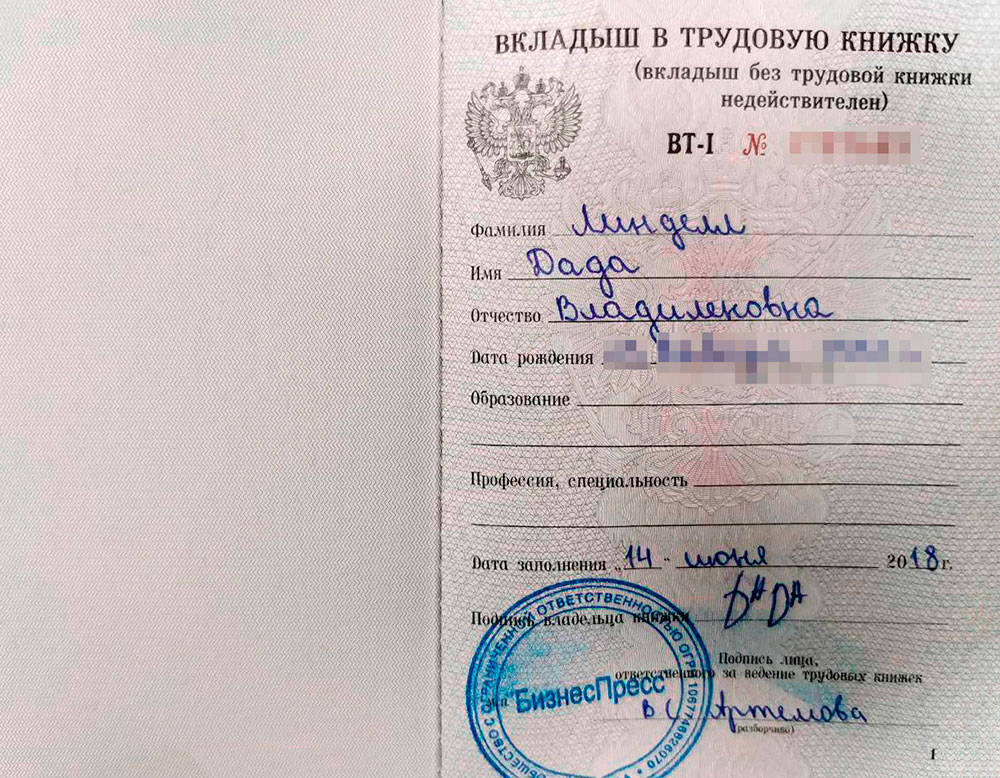 ВКЛАДЫШ В ТРУДОВУЮ КНИЖКУ
(вкладыш без трудовой книжки
недействителен)
ВТ-I №
Фамилия Линделл
Имя Дада
Отчество Владиленовна
Дата рождения
Образование
Профессия, специальность
Дата заполнения „14" июня 2018г.
Подпись владельца книжки ДАДА
Подпись лица,
ответственного за ведение трудовых книжек
М.П. В С Артемова
(разборчиво)
ОБЩЕСТВО С ОГРАНИЧЕННОЙ ОТВЕТСТВЕННОСТЬЮ ОГРН 1067746826070
"БизнесПресс"
1